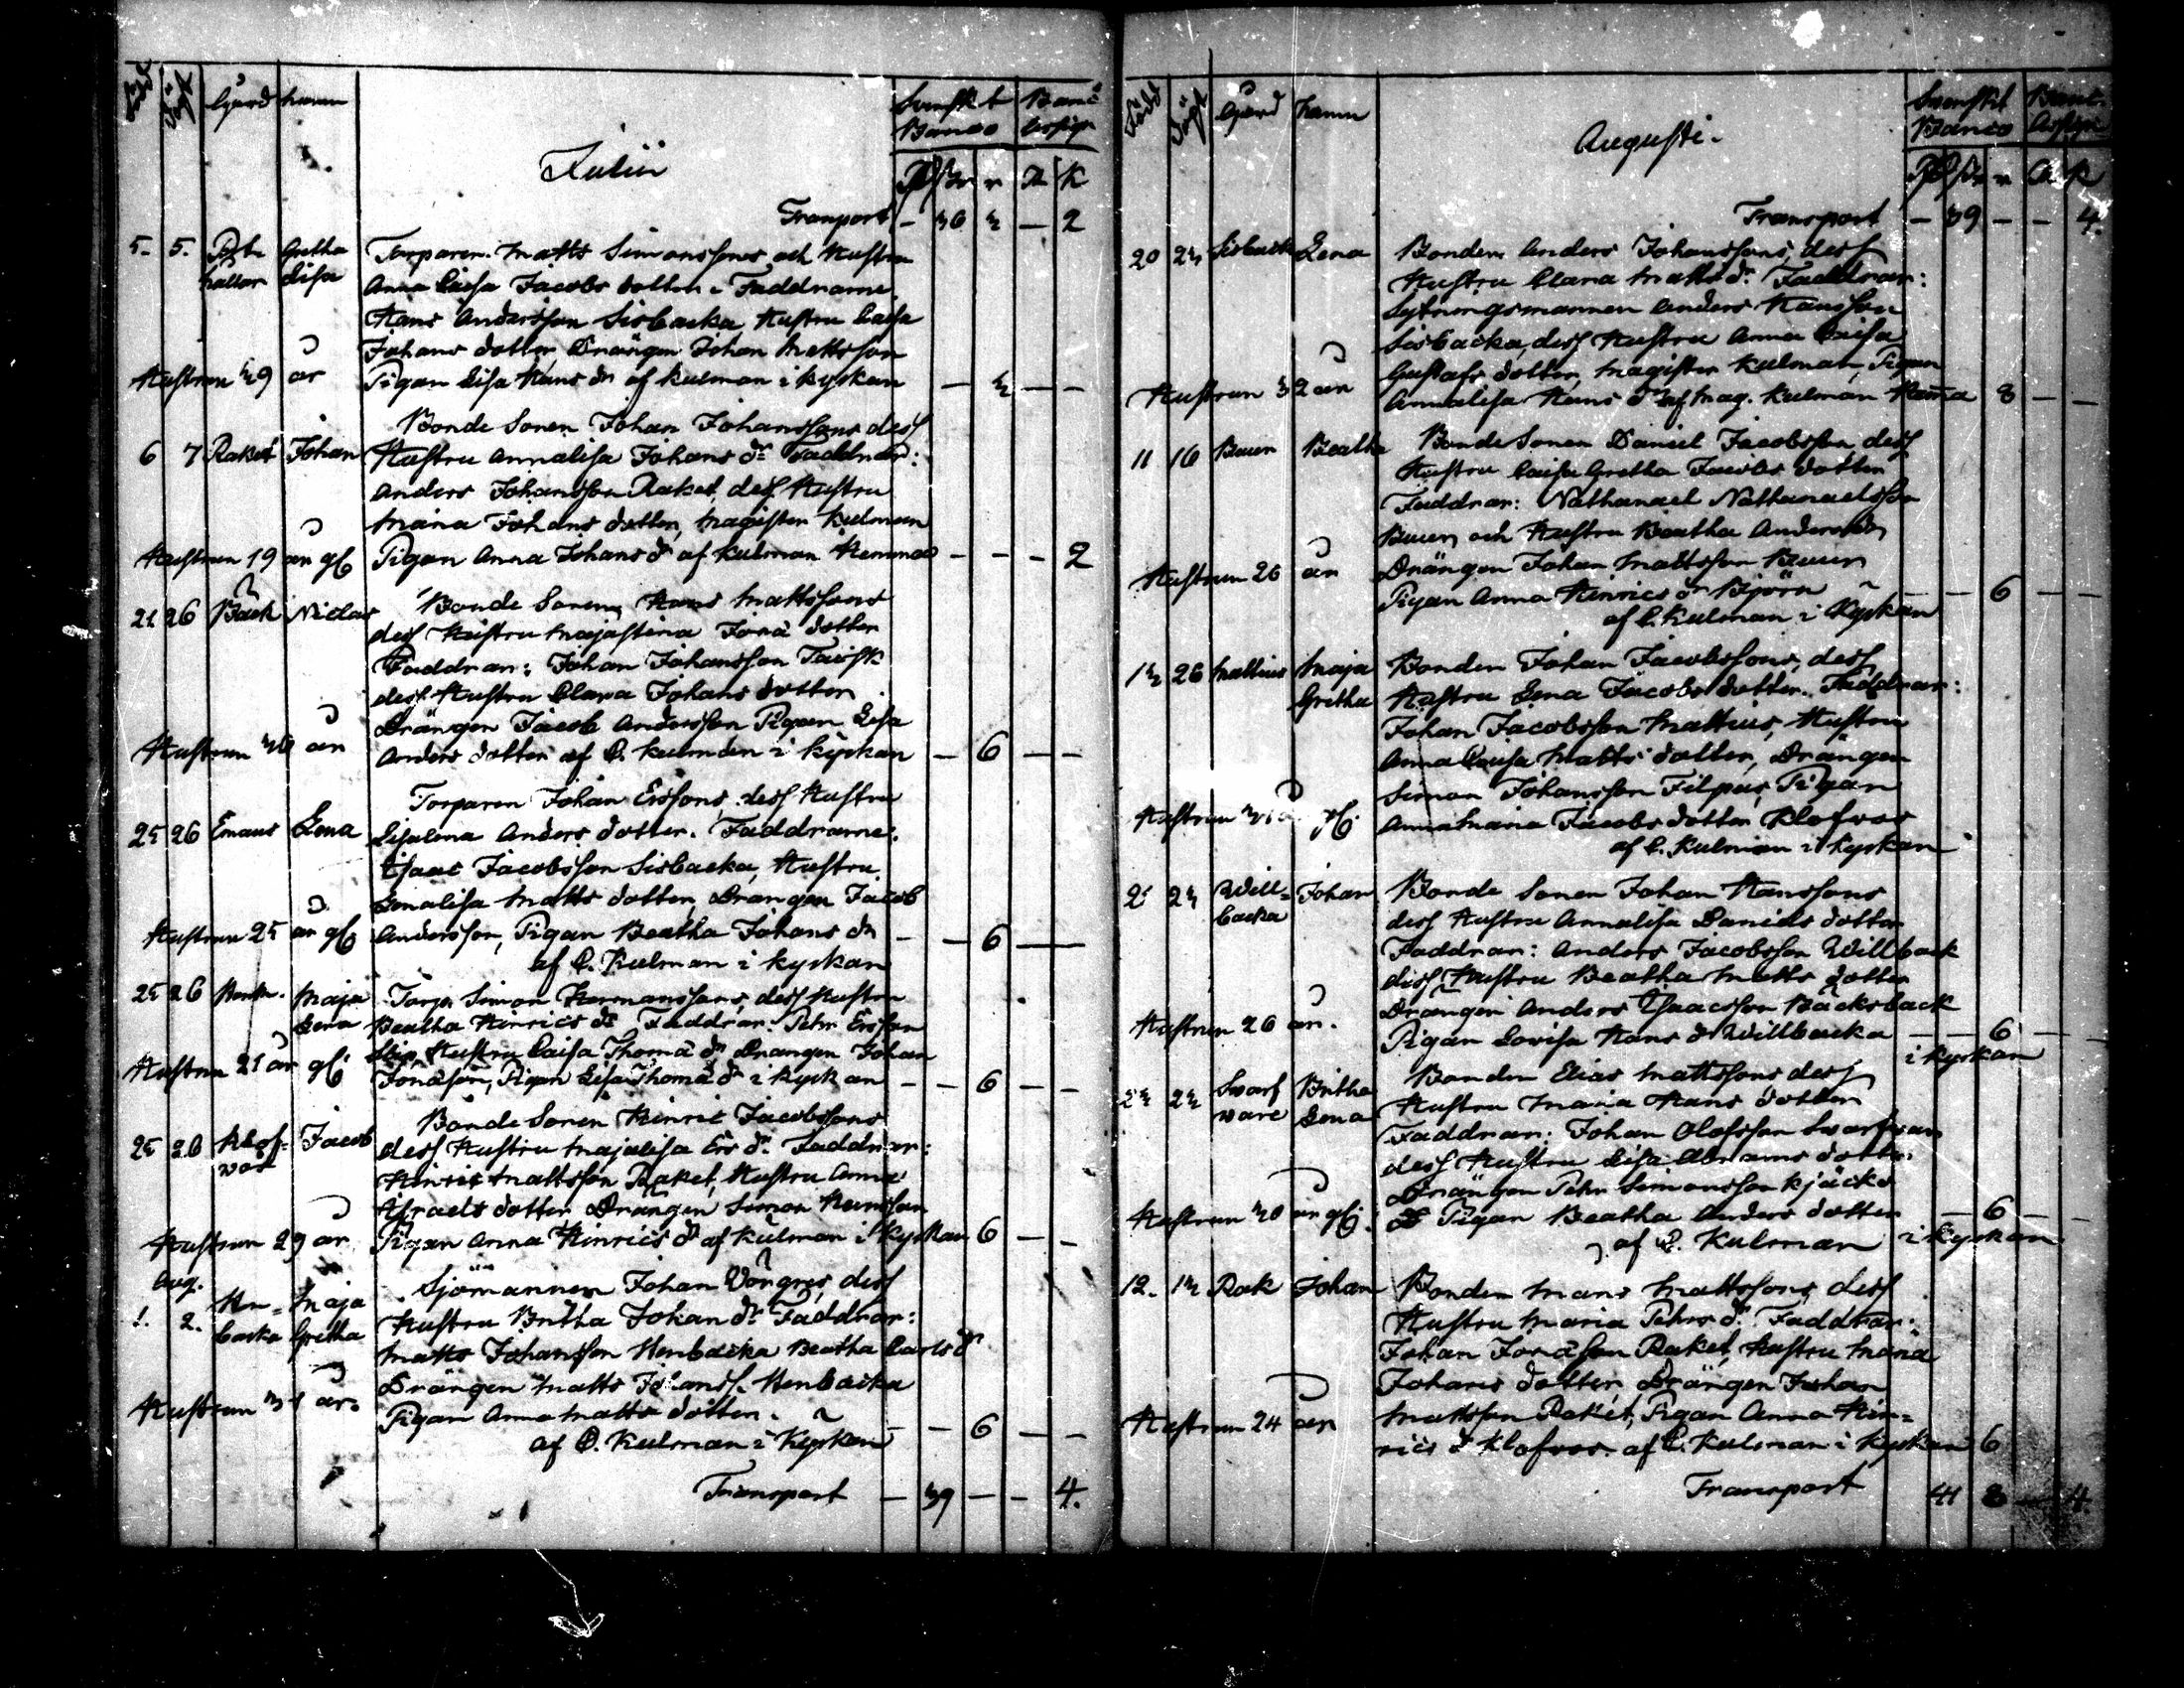 Född Döpt Gård hamn Svenskt Banco Banco Assign
Julii
R K
Transport - 36 3 - 2
5. 5. Gretha Torparen Matts Simonssons och Hustru
Lisa Anna Caisa Jacobs dotter. Faddrarne
Hans Andersson Sisbacka Hustru Caisa
Johans dotter, Drängen Johan Mattsson
Hustrun 39 år Pigan Lisa Hans dr af Kulman i kyrkan - 3 - -
Bonde Sonen Johan Johanssons dess
6 7 Raket Johan Hustru Annalisa Johans dr Faddrar:
Anders Johansson Raket, dess Hustru
Maria Johans dotter, Magister Kulman
Hustrun 19 år gl Pigan Anna Johans dr af Kulman Hemma - - - 2
21 26 Back Niclas Bonde Sonen Hans Mattssons
dess Hustru Majastina Jona dotter
Faddrar: Johan Johansson
dess Hustru Clara Johans dotter
Drängen Jacob Andersson Pigan Lisa
Hustrun 36 år Anders dotter af C. Kulman i kyrkan - 6 - -
Torparen Johan Erssons dess Hustru
25 26 Emaus Lena Lisalena Anders dotter. Faddrarne:
Isaac Jacobsson Sisbacka, Hustru
Lenalisa Matts dotter, Drängen Jacob
Hustrun 25 år gl Andersson, Pigan Beatha Johans dr - - 6 -
af C. Kulman i kyrkan
25 26 Maja Torp. Simon Hermanssons, dess Hustru
Lena Beatha Hinrics dr Faddrar. Pehr Ersson
Hustru Caisa Thoma dr Drängen Johan
Hustrun 21 år gl Jonasson, Pigan Lisa Thoma dr i kyrkan - - 6 - -
Bonde Sonen Hinric Jacobssons
25 26 Klof- Jacob dess Hustru Majalisa Ers dr. Faddrar:
vos Hinric Mattsson Raket, Hustru Anna
Israels dotter Drängen Simon Hansson
Hustrun 29 år Pigan Anna Hinrics dr af Kulman i Kyrkan 6 - -
Aug.
Sjömannen Johan Vöngres, dess
1. 2. Hen- Maja Hustru Britha Johan dr. Faddrar:
backa Gretha Matts Johansson Henbacka Beatha Carls dr
Drängen Matts Johanss. Henbacka
Hustrun 31 år. Pigan Anna Matts dotter. - - 6 - -
af C. Kulman i Kyrkan
Transport - 39 - - 4.
Född Döpt Gård hamn Svenskt Banco Banco Assign
Augusti.
Transport - 39 - - 4.
20 23 Sisbacka Lena Bonden Anders Johanssons, dess
Hustru Clara Matts dr. Faddrar:
Sytningsmannen Anders Hansson
Sisbacka, dess Hustru Anna Caisa
Gustafs dotter, Magister Kulman, Pigan
Hustrun 32 år Annalisa Hans dr af Mag. Kulman Hemma 8 - -
11 16 Beatha Bonde Sonen Daniel Jacobsson, dess
Hustru Caisa Gretha Jacobs dotter
Faddrar: Nathanael Nathanaelsson
och Hustru Beatha Anders dr
Hustrun 26 år Drängen Johan Mattsson
Pigan Anna Hinrics dr Björn - - 6 - -
af C. Kulman i Kyrkan
13 26 Mattius Maja Bonden Johan Jacobssons, dess
Gretha Hustru Lena Jacobs dotter. Faddrar:
Johan Jacobsson Mattius, Hustru
Anna Caisa Matts dotter, Drängen
Simon Johansson Filpus, Pigan
Hustrun gl. Anna Maria Jacobs dotter Klofvos
af C. Kulman i Kyrkan
21 23 Will- Johan Bonde Sonen Johan Hanssons
backa dess Hustru Annalisa Daniels dotter
Faddrar: Anders Jacobsson Willback
dess Hustru Beatha Matts dotter
Drängen Anders Isaacsson Backsback
Hustrun 26 år. Pigan Lovisa Hans dr Willbacka - 6 - -
i kyrkan
Bonden Elias Mattssons dess
23 Swarf Britha Hustru Maria Hans dotter
vare Lena Faddrar: Johan Olofsson Swarfvar
dess Hustru Lisa Abrams dotter.
Drängen Pehr Simonsson Kjäcks
Hustrun 30 år gl. Pigan Beatha Anders dotter - 6 - -
af C. Kulman i kyrkan
12. 13 Rak Johan Bonden Mans Mattssons dess
Hustru Maria Pehrs dr. Faddrar:
Johan Jonasson Raket, Hustru Maria
Johans dotter, Drängen Johan
Hustrun 24 år Mattsson Raket, Pigan Anna Hin-
rics dr Klofvos. af C. Kulman i Kyrkan 6
Transport 41 8 - 4